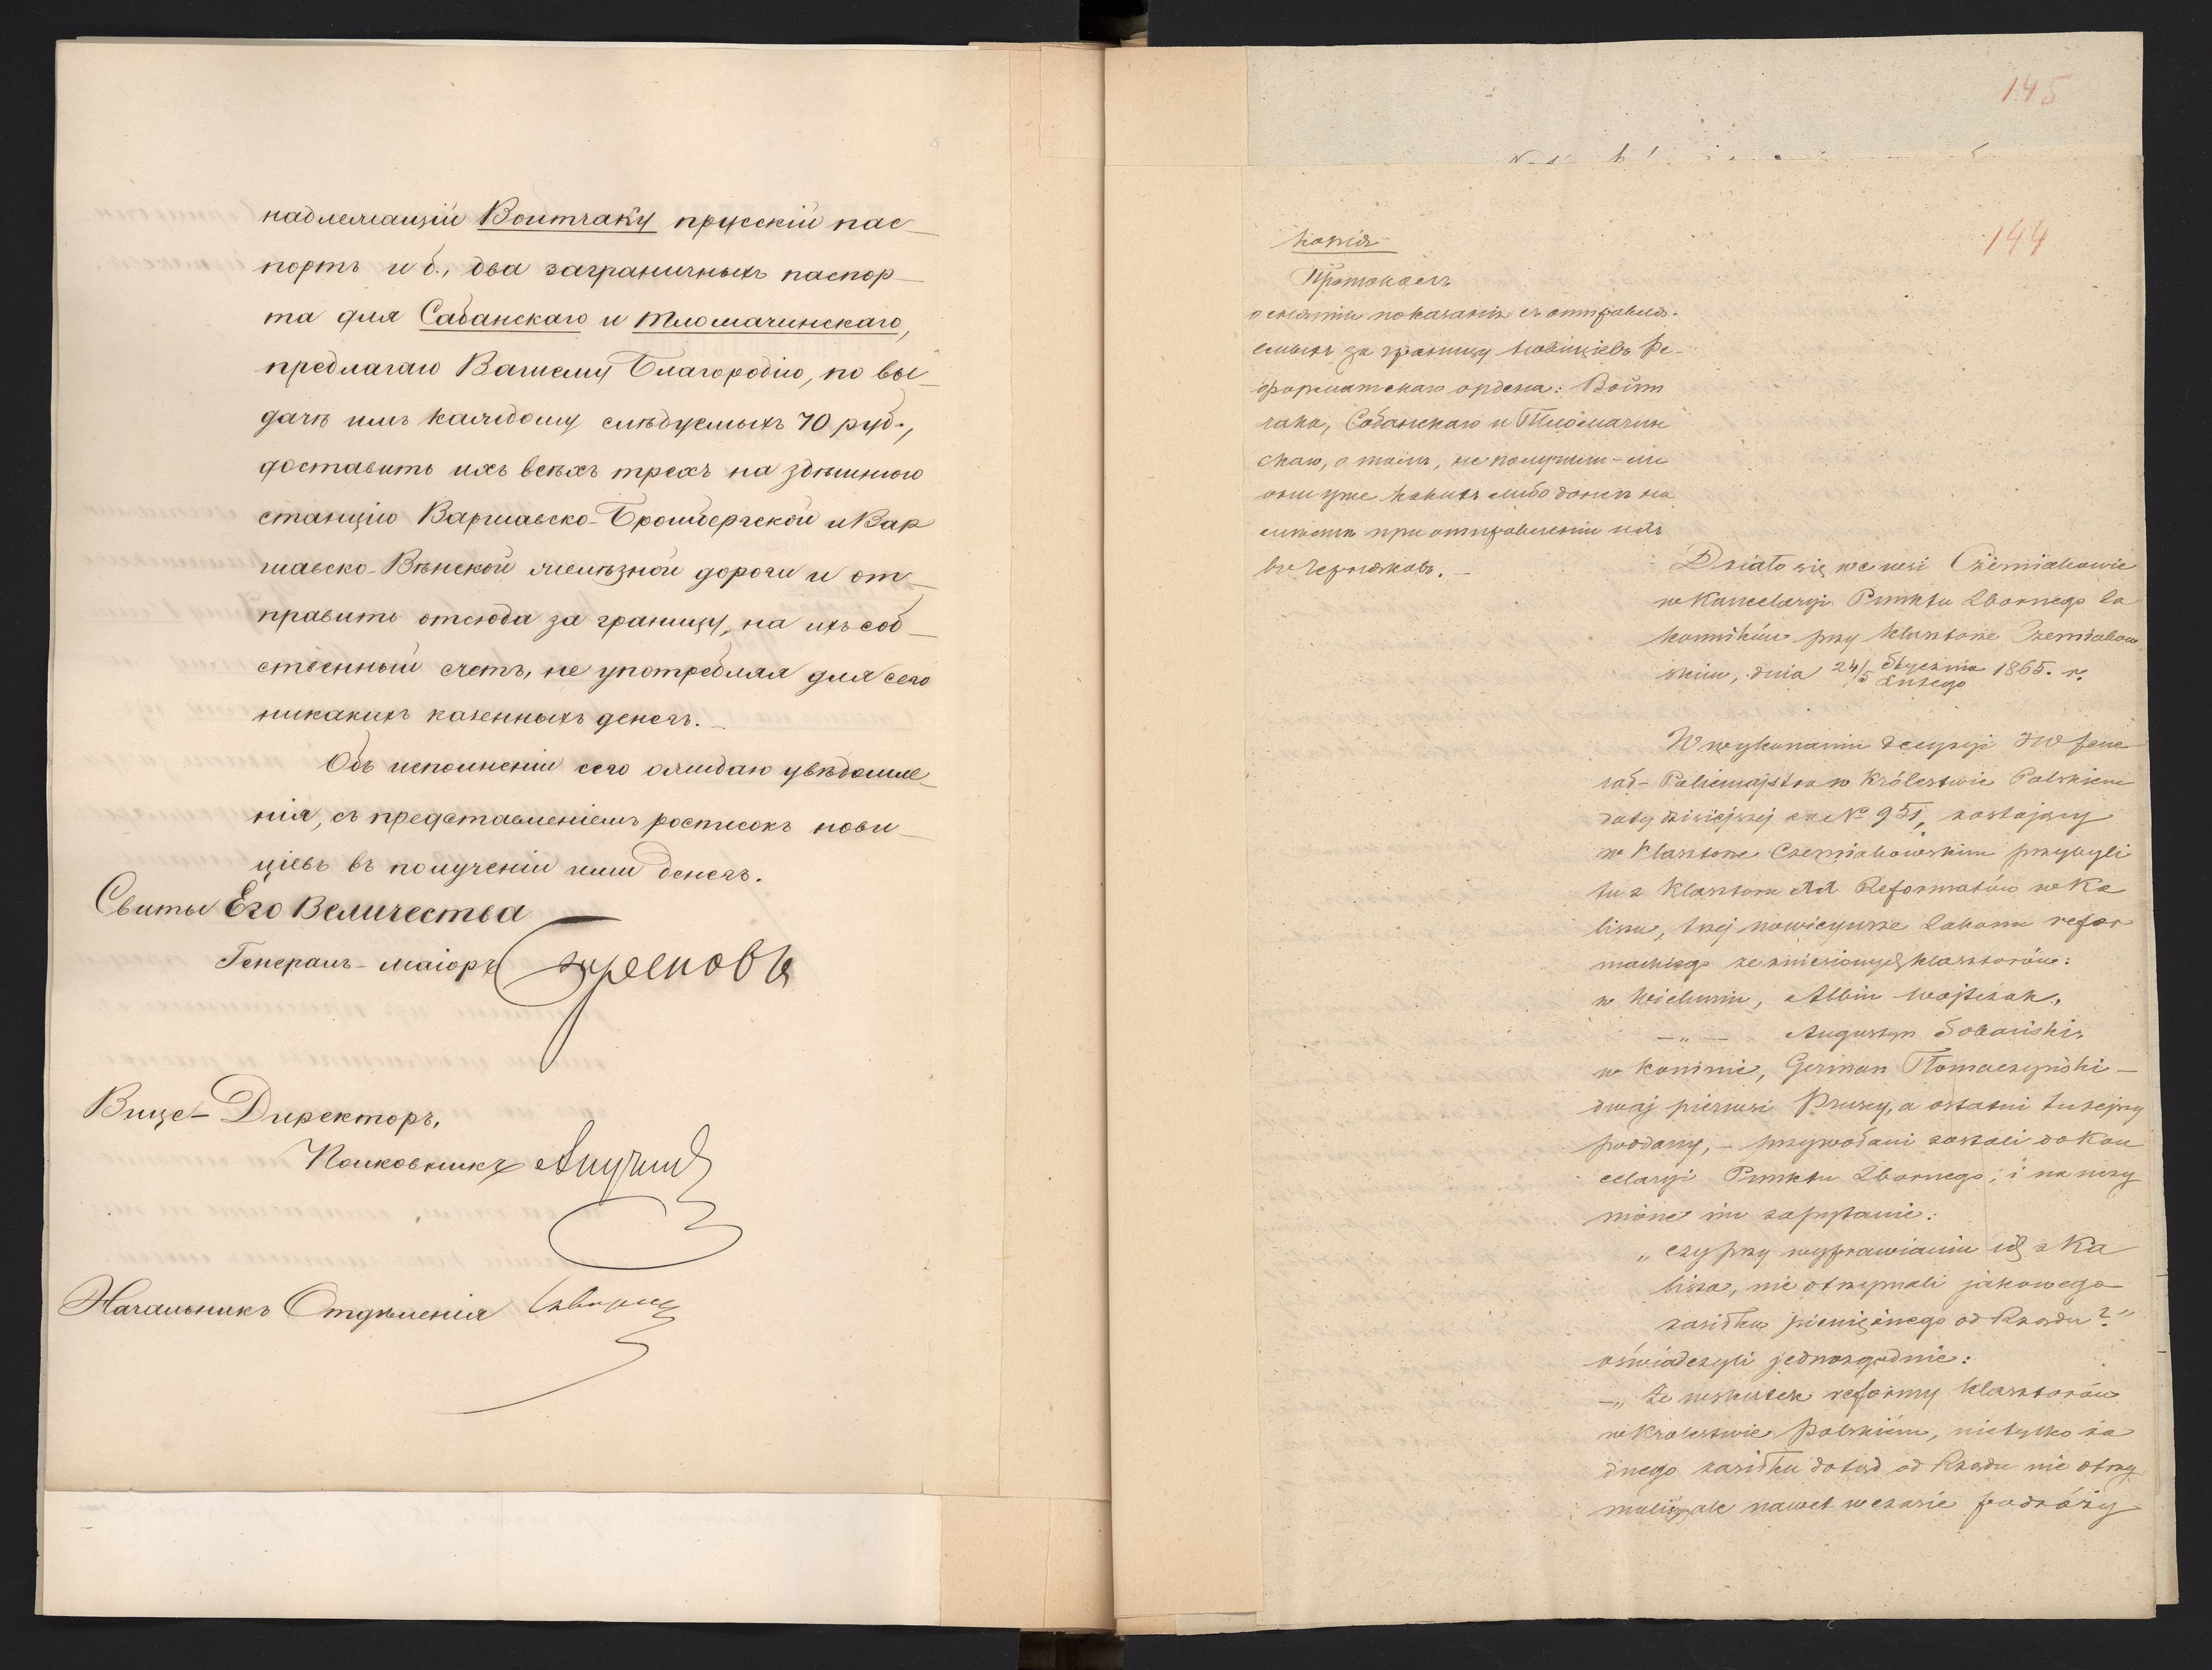 надлежащій Войтчаку прусскій пас-
портъ и б., два заграничныхъ паспор-
та для Сабанскаго и Тломачинскаго,
предлагаю Вашему Благородію, по вы-
дачѣ имъ каждому слѣдуемыхъ 70 руб.,
доставить ихъ всѣхъ трехъ на здѣшнюю
станцію Варшавско-Бромбергской и Вар
шавско-Вѣнской желѣзной дороги и от-
править отсюда за границу, на ихъ соб-
ственный счетъ, не употребляя для сего
никакихъ казенныхъ денегъ.
Объ исполненіи сего ожидаю увѣдомле-
нія, съ представленіемъ росписокъ нови-
ціевъ въ полученіи ими денегъ.
Свиты Его Величества
Генералъ-маіоръ
Вице-Директоръ,
Полковникъ Анучинъ
Начальникъ Отдѣленія
145
144
Копія
Протоколъ
о снятіи показанія съ отправля-
емыхъ за границу новиціевъ Ре-
форматскаго ордена: Войт
чака, Собанскаго и Тломачин
скаго, о томъ, не получили-ли
они уже какихъ либо денегъ на
при отправленіи ихъ
въ Черняковъ.
Działo się we wsi Czerniakowie
w Kancelaryi Punktu Zbornego Za
konników przy klasztorze Czerniakow
skim, dnia 24/5 Stycznia/Lutego 1865. r.
W wykonaniu decyzyi JW Jene
rał-Policmajstra w Królestwie Polskiem
daty dzisiejszej za № 951, zostający
w Klasztorze Czerniakowskim przybyli
tu z Klasztoru OO Reformatów w Ka
liszu, trzej nowicyusze Zakonu refor
mackiego ze zniesionych klasztorów:
w Wieluniu, Albin Wojtczak,
—„— Augustyn Sobański,
w Koninie, German Tłomaczyński —
dwaj pierwsi Pruscy, a ostatni tutejszy
poddany, – przywołani zostali do Kan
celaryi Punktu Zbornego; i na uczy
nione im zapytanie:
„czy przy wyprawianiu ich z Ka
lisza, nie otrzymali jakowego
zasiłku pieniężnego od Rządu?"
oświadczyli jednozgodnie:
—„Że wskutek reformy klasztorów
w Krolestwie Polskiém, nietylko ża
dnego zasiłku dotąd od Rządu nie otrzy
maliśmy, ale nawet w czasie podróży